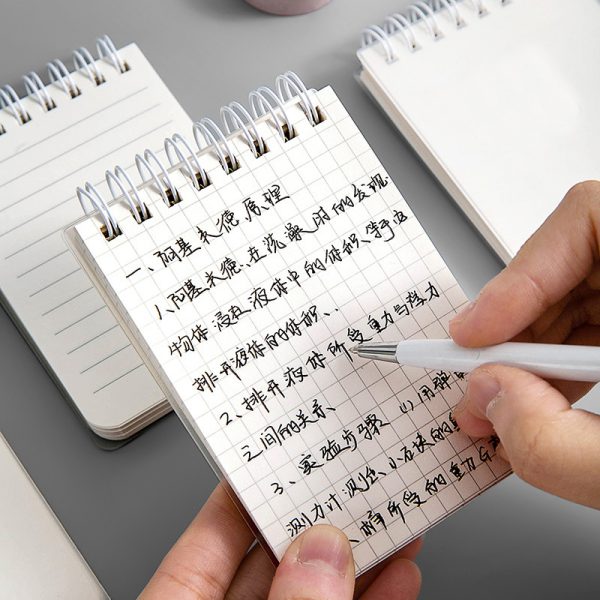 一、阿基米德原理
1、阿基米德、在洗澡时的发现
物体浸在液体中的体积、等于
排开液体的体积、、
2、排开液体所受重力与浮力
之间的关系
3、实验步骤 (1) 用弹
测力计测出、小石块的重
、桶所受的重力